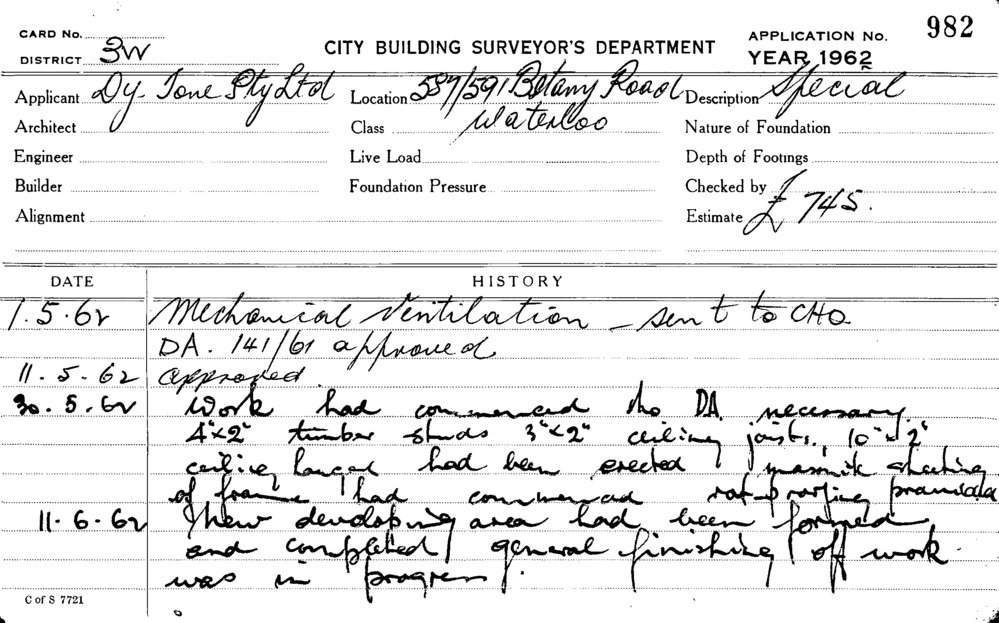 982
CARD No.
DISTRICT 3W
CITY BUILDING SURVEYOR'S DEPARTMENT
APPLICATION No.
YEAR 1962
Applicant Dy-Tone Pty Ltd
Location 587/591 Botany Road
Waterloo
Description Special
Architect
Class
Nature of Foundation
Engineer
Live Load
Depth of Footings
Builder
Foundation Pressure
Checked by
Alignment
Estimate £745.
DATE HISTORY
1.5.62 Mechanical Ventilation - sent to CHO
DA. 141/61 approved
11.5.62 approved
30.5.62 Work had commenced no DA necessary
4"x2" timber studs 3"x2" ceiling joists, 10"x2"
ceiling hanger had been erected, masonite sheeting
of frame had commenced rat-proofing provided
11.6.62 New developing area had been formed
and completed, general finishing off work
was in progress.
C of S 7721